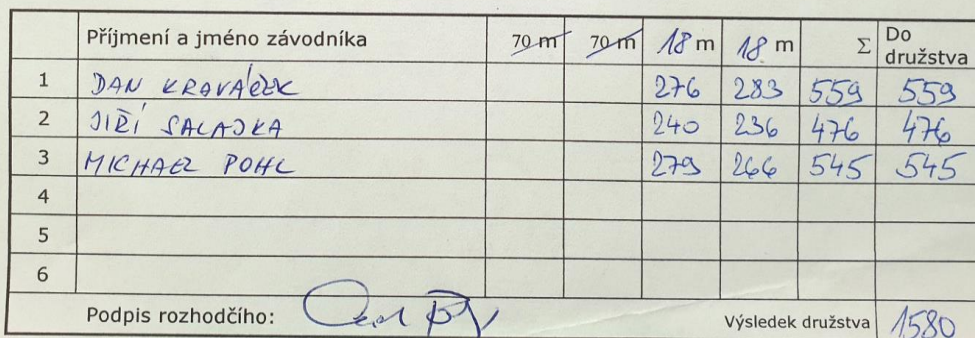 Příjmení a jméno závodníka 70 m 70 m 18 m 18 m Σ Do družstva
1 DAN KRAVÁČEK 276 283 559 559
2 JIŘÍ SALAJKA 240 236 476 476
3 MICHAEL POHL 279 266 545 545
4
5
6
Podpis rozhodčího: Výsledek družstva 1580